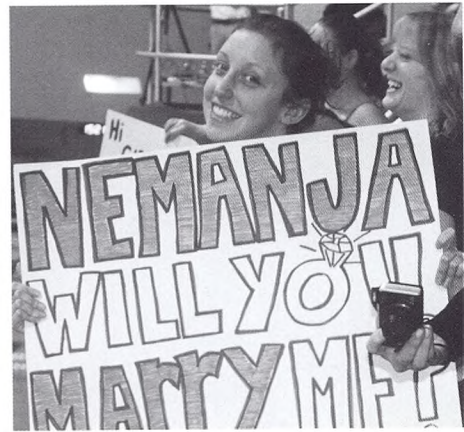 Hi
NEMANJA
WILL YOU
MARRY ME?